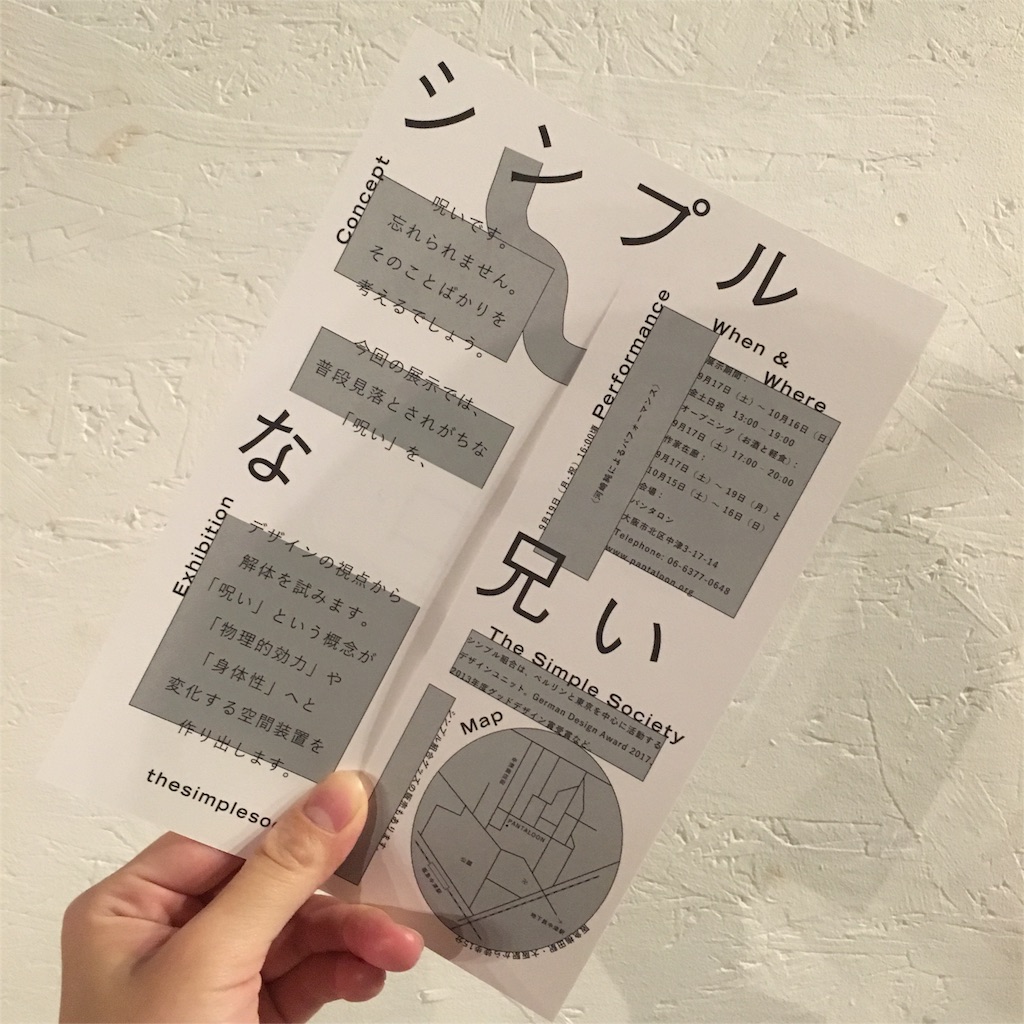 シンプル
な
呪い
Concept
呪いです。
忘れられません。
そのことばかりを
考えるでしょう。
今回の展示では、
普段見落とされがちな
「呪い」を、
Exhibition
デザインの視点から
解体を試みます。
「呪い」という概念が
「物理的効力」や
「身体性」へと
変化する空間装置を
作り出します。
thesimplesoc
Performance
9月19日（月・祝）16:00頃
（河嶋
によるパフォーマンス）
When &
Where
展示期間：
9月17日（土）〜 10月16日（日
金土日祝 13:00 – 19:00
オープニング（お酒と軽食）：
9月17日（土）17:00 – 20:00
作家在廊：
9月17日（土）〜 19日（月）と
10月15日（土）〜 16日（日）
会場：
パンタロン
大阪市北区中津3-17-14
Telephone: 06-6377-0648
www.pantaloon.org
The Simple Society
シンプル組合は、ベルリンと東京を中心に活動する
デザインユニット。German Design Award 2017、
2013年度グッドデザイン賞受賞など。
シンプル組合グッズの販売もあります
Map
PANTALOON
公園
地下鉄中津駅
阪急梅田駅・大阪駅から徒歩15分